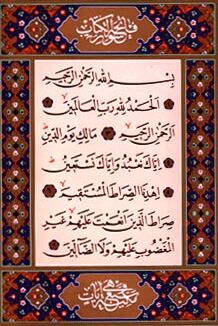 فاتحة الكتاب
بسم الله الرحمن الرحيم
الحمد لله رب العالمين
الرحمن الرحيم مالك يوم الدين
إياك نعبد وإياك نستعين
اهدنا الصراط المستقيم
صراط الذين أنعمت عليهم غير
المغضوب عليهم ولا الضالين